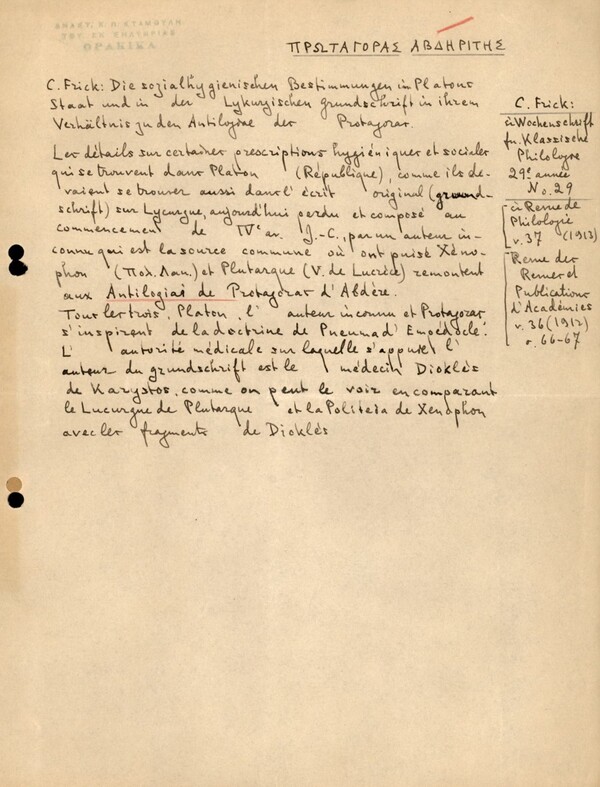 ΠΡΩΤΑΓΟΡΑΣ ΑΒΔΗΡΙΤΗΣ
C. Frick: Die sozialhygienischen Bestimmungen in Platons
Staat und in der Lykurgischen Grundschrift in ihrem
Verhältnis zu den Antilogiae des Protagoras.
Les détails sur certaines prescriptions hygiéniques et sociales
qui se trouvent dans Platon (République), comme ils de-
vaient se trouver aussi dans l'écrit original (grund-
schrift) sur Lycurgue, aujourd'hui perdu et composé au
commencement de IVe av. J.-C., par un auteur in-
connu qui est la source commune où ont puisé Xéno-
phon (Πολ. Λακ.) et Plutarque (V. de Lucrèce) remontent
aux Antilogiai de Protagoras d'Abdère.
Tous les trois, Platon, l' auteur inconnu et Protagoras
s'inspirent de la doctrine de Pneuma d'Empédocle.
L' autorité médicale sur laquelle s'appuie l'
auteur du grundschrift est le médecin Dioklès
de Karystos, comme on peut le voir en comparant
le Lucurgue de Plutarque et la Politeia de Xenophon
avec les fragments de Dioklès
C. Frick:
in Wochenschrift
fu. Klassische
Philologie
29e année
No. 29
in Revue de
Philologie
v. 37 (1913)
Revue des
Revues et
Publications
d'Académies
v. 36 (1912)
66-67
ΘΡΑΚΙΚΑ